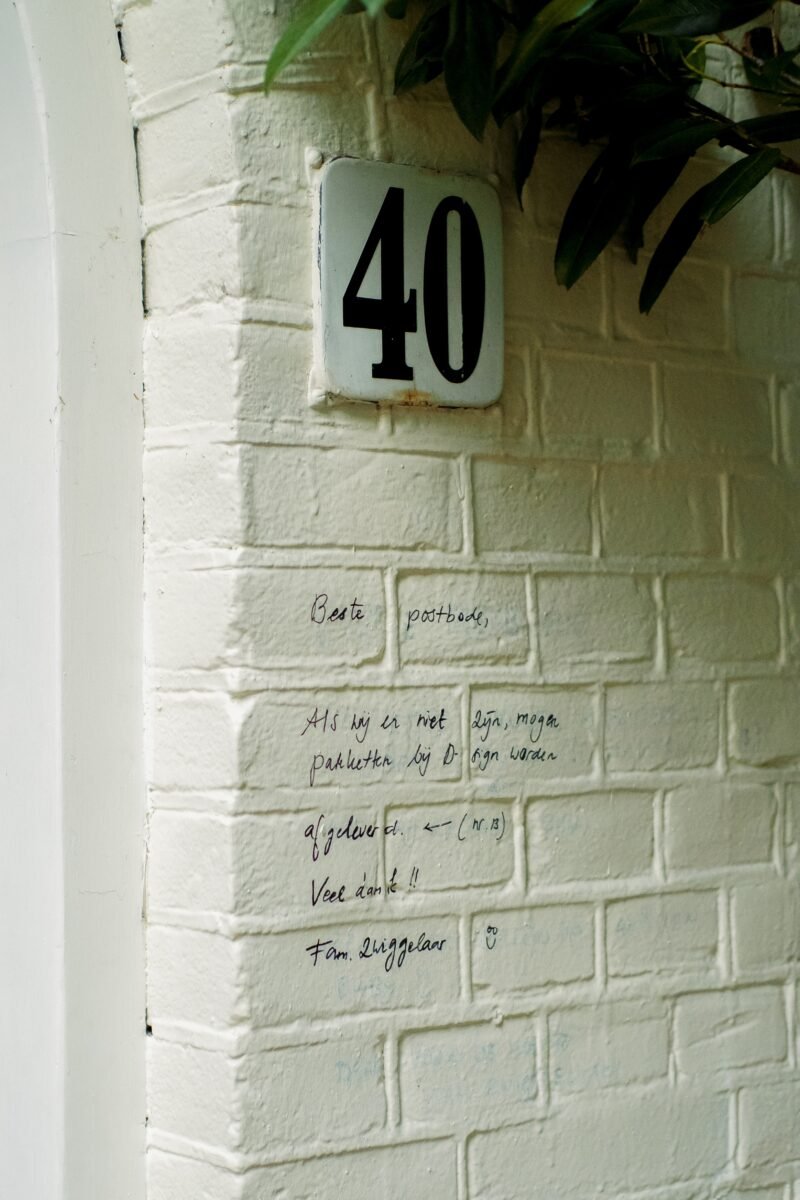 40
Beste postbode,
Als wij er niet zijn, mogen
pakketten bij D-sign worden
afgeleverd. ← (nr. 13)
Veel dank !!
Fam. Zwiggelaar